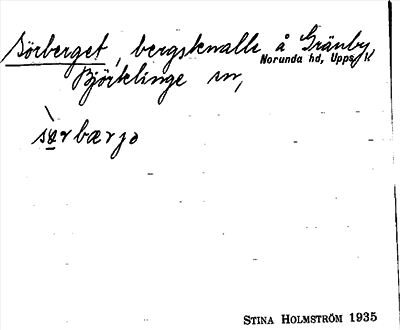 Sörberget, bergsknalle å Gränby,
Norunda hd, Upps. l.
Björklinge sn,
særbærjə
STINA HOLMSTRÖM 1935